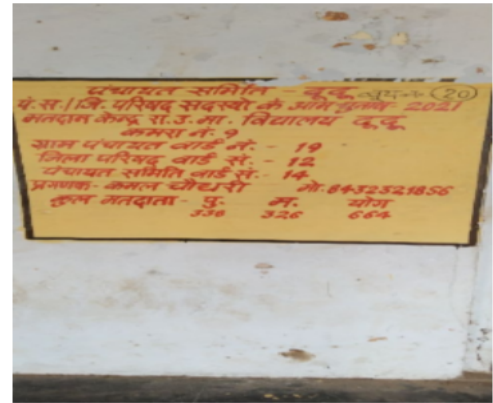 पंचायत समिति - दूदू बूथ नं. (20)
पं.स./जि. परिषद सदस्यो के आम चुनाव- 2021
मतदान केन्द्र रा.उ.मा. विद्यालय दूदू
कमरा नं. 9
ग्राम पंचायत वार्ड नं. - 19
जिला परिषद वार्ड सं. - 12
पंचायत समिति वार्ड सं. - 14
प्रगणक- कमल चौधरी मो. 8432521856
कुल मतदाता - पु. म. योग
338 326 664